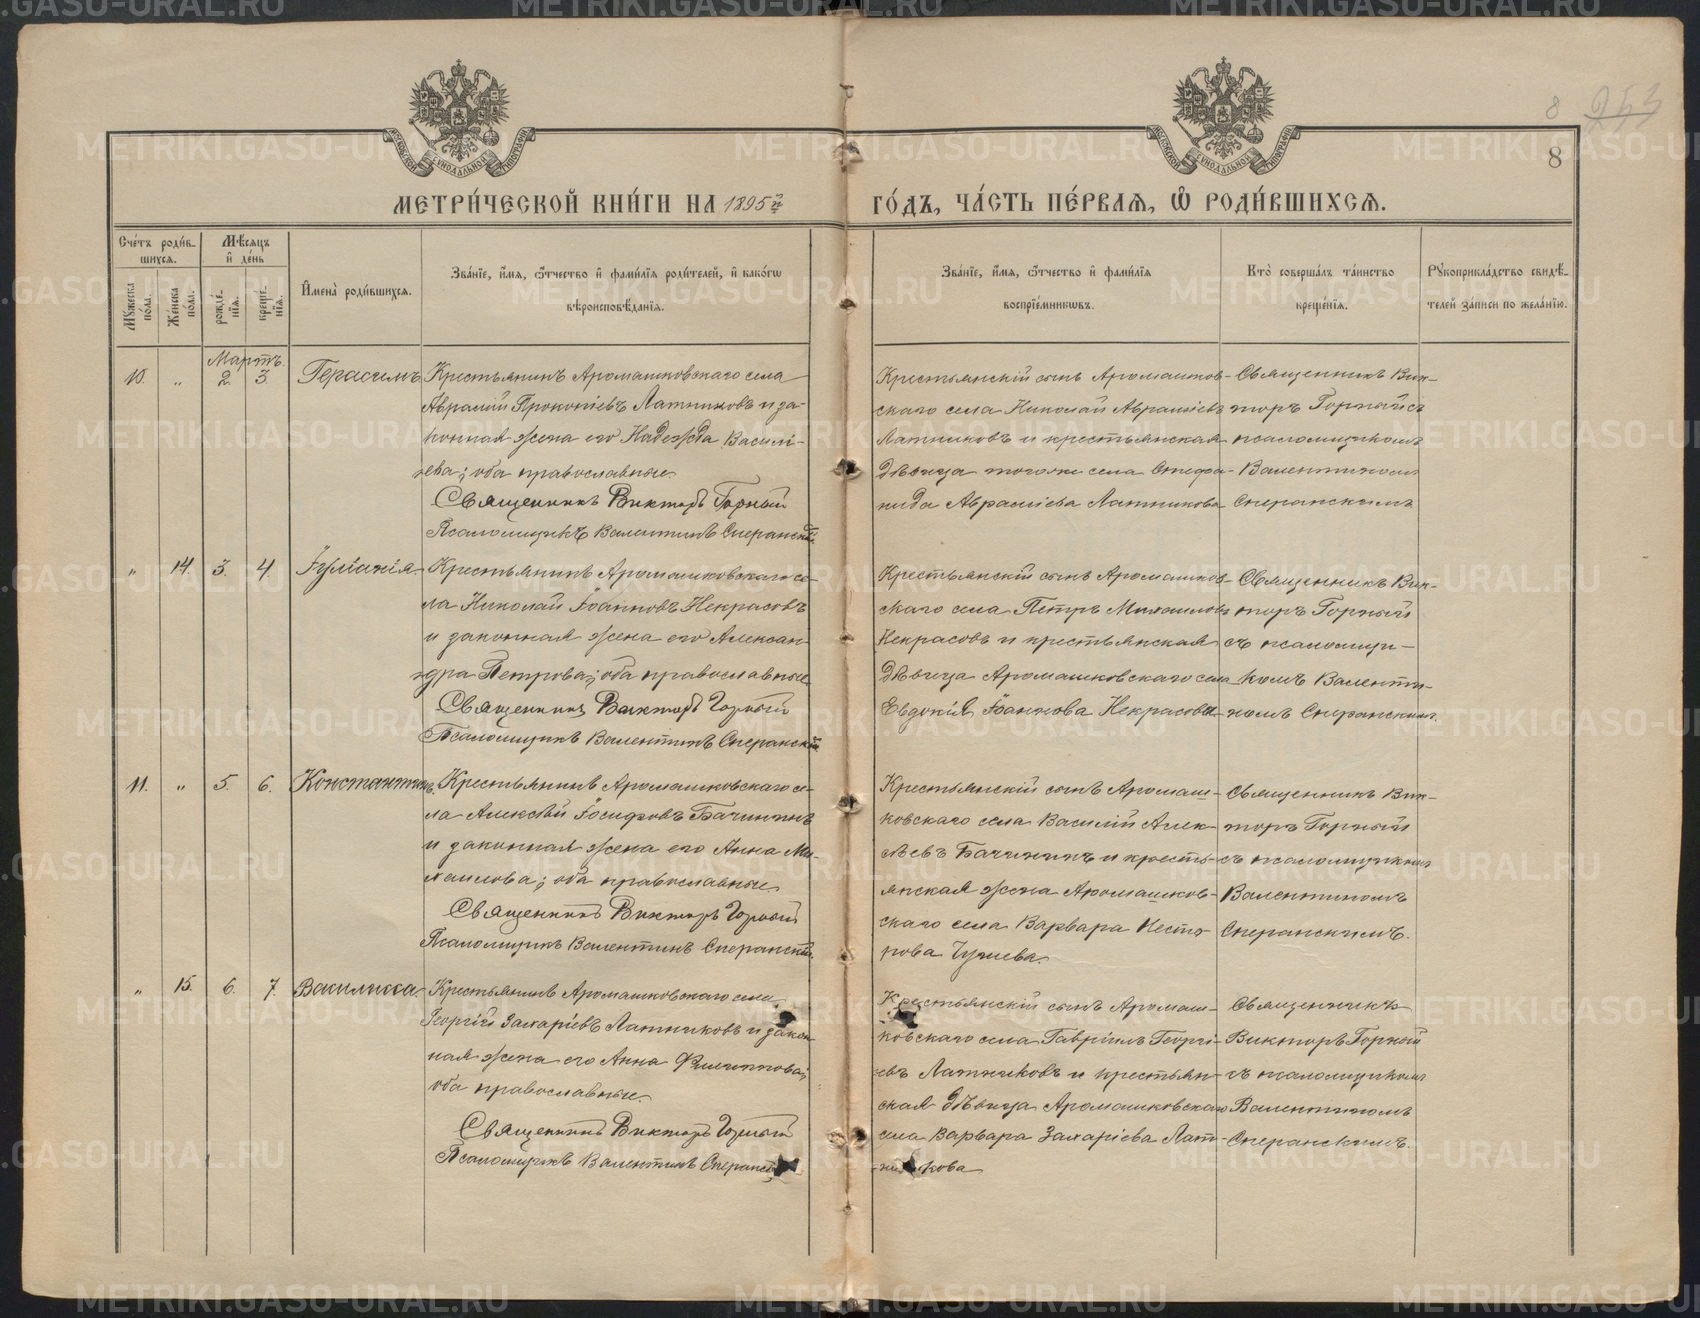 8 253
8
МЕТРИ́ЧЕСКОЙ КНИ́ГИ НА 1895й ГО́ДЪ, ЧА́СТЬ ПЕ́РВАѦ, Ѽ РОДИ́ВШИХСѦ.
Сче́тъ роди́в-
шихсѧ.
Мѣ́сѧцъ
и҆ де́нь
Му́жеска по́ла.
Же́нска по́ла.
рожде́-нїѧ.
креще́-нїѧ.
И҆мена̀ роди́вшихсѧ.
Зва́нїе, и҆́мѧ, ѻ҆́тчество и҆ фами́лїѧ роди́телей, и҆ како́гѡ
вѣроисповѣ́данїѧ.
Зва́нїе, и҆́мѧ, ѻ҆́тчество и҆ фами́лїѧ
воспрїе́мникѡвъ.
Кто̀ соверша́лъ та́инство
креще́нїѧ.
Рꙋкоприкла́дство свидѣ́-
телей за́писи по жела́нїю.
Мартъ.
10. „ 2. 3. Герасимъ
Крестьянинъ Аромашковскаго села
Авраамій Прокопіевъ Латниковъ и за-
конная жена его Надежда Василі-
ева; оба православные.
Священникъ Викторъ Горный
Псаломщикъ Валентинъ Сперанскій.
Крестьянскій сынъ Аромашков-
скаго села Николай Авраміевъ
Латниковъ и крестьянская
дѣвица тогоже села Стефа-
нида Авраміева Латникова
Священникъ Вик-
торъ Горный съ
псаломщикомъ
Валентиномъ
Сперанскимъ
„ 14. 3. 4. Іуліанія.
Крестьянинъ Аромашковскаго се-
ла Николай Іоанновъ Некрасовъ
и законная жена его Алексан-
дра Петрова; оба православные
Священникъ Викторъ Горный
Псаломщикъ Валентинъ Сперанскій
Крестьянскій сынъ Аромашков-
скаго села Петръ Михаиловъ
Некрасовъ и крестьянская
дѣвица Аромашковскаго села
Евдокія Іоаннова Некрасова
Священникъ Вик-
торъ Горный
съ псаломщи-
комъ Валенти-
номъ Сперанскимъ.
11. „ 5. 6. Константинъ.
Крестьянинъ Аромашковскаго се-
ла Алексѣй Іосифовъ Бачининъ
и законная жена его Анна Ми-
хаилова; оба православные
Священникъ Викторъ Горный
Псаломщикъ Валентинъ Сперанскій.
Крестьянскій сынъ Аромаш-
ковскаго села Василій Алек-
сѣевъ Бачининъ и кресть-
янская жена Аромашков-
скаго села Варвара Несто-
рова
Священникъ Вик-
торъ Горный
съ псаломщикомъ
Валентиномъ
Сперанскимъ.
„ 15. 6. 7. Василисса.
Крестьянинъ Аромашковскаго села
Георгій Захаріевъ Латниковъ и закон-
ная жена его Анна Филиппова;
оба православные.
Священникъ Викторъ Горный
Псаломщикъ Валентинъ Сперанск
Крестьянскій сынъ Аромаш-
ковскаго села Гавріилъ Георгі-
евъ Латниковъ и крестьян-
ская дѣвица Аромашковскаго
села Варвара Захаріева Лат-
никова
Священникъ
Викторъ Горный
съ псаломщикомъ
Валентиномъ
Сперанскимъ.
METRIKI.GASO-URAL.RU